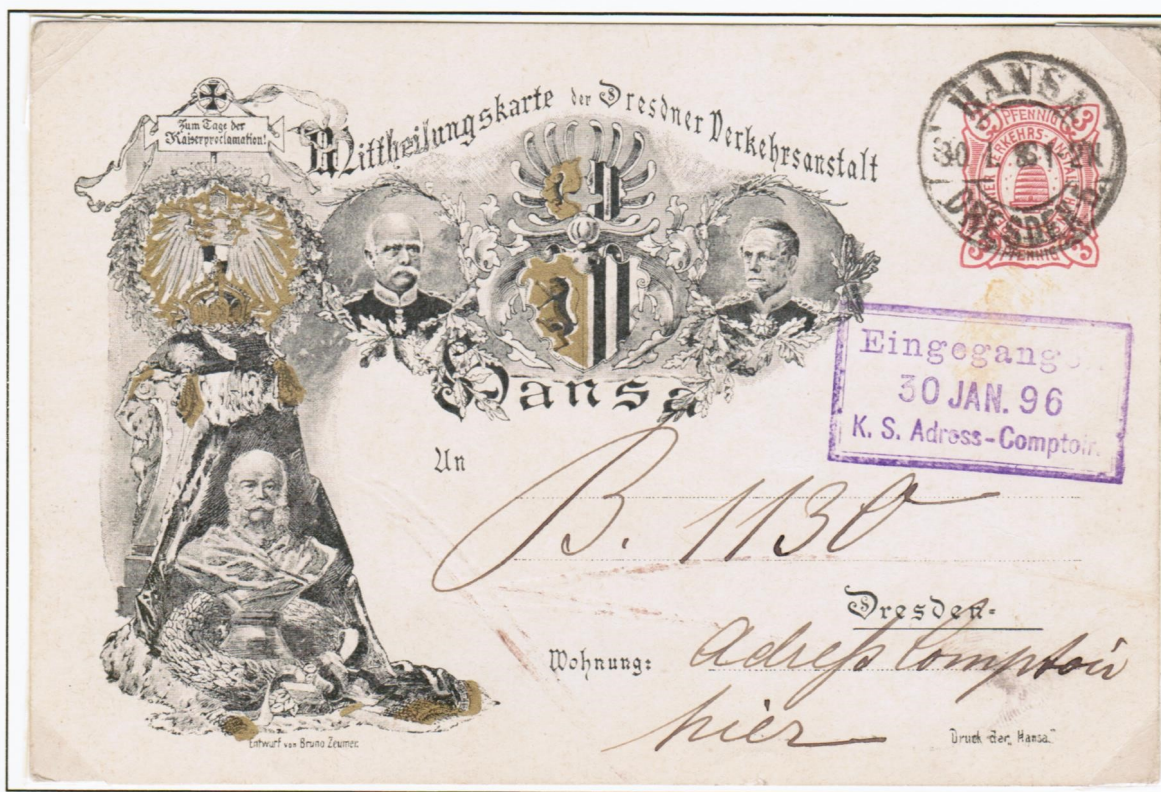 Zum Tage der
Kaiserproclamation!
Mittheilungskarte der Dresdner Verkehrsanstalt
Hansa
HANSA
30 1 2N
DRESDEN
3 PFENNIG 3
VERKEHRS-
3 PFENNIG 3
Eingegang
30 JAN. 96
K. S. Adress-Comptoir.
An
B. 1130
Dresden-
Wohnung: Adreß Comptoir
hier
Entwurf von Bruno Zeumer.
Druck der „Hansa."